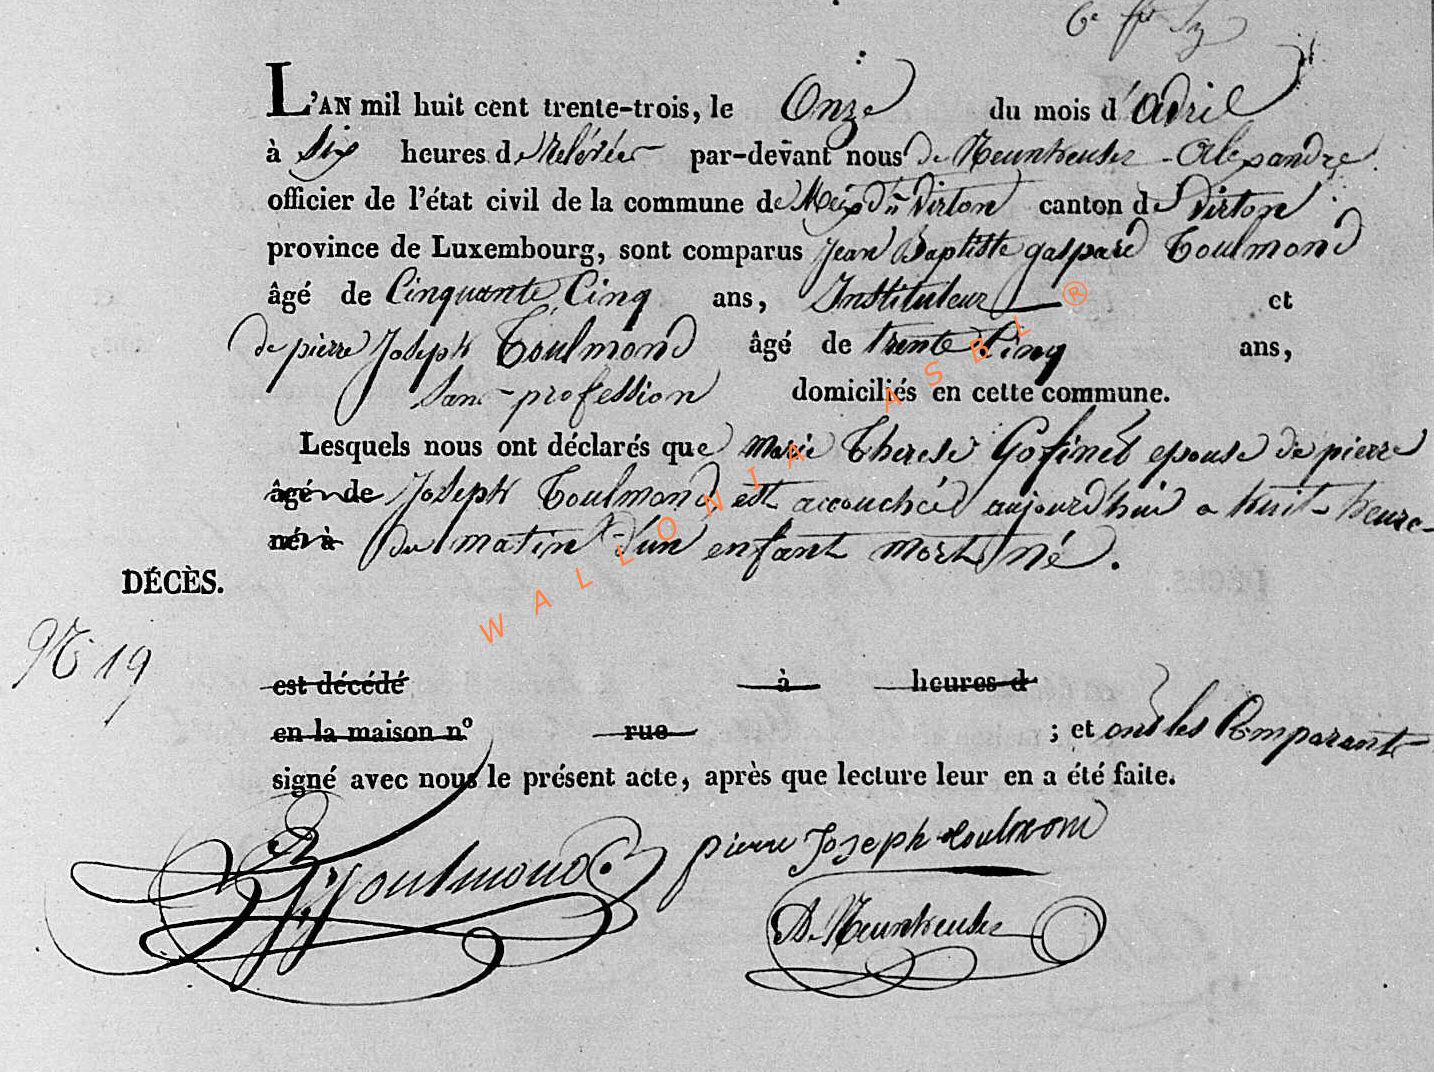 L'AN mil huit cent trente-trois, le Onze du mois d'avril
à Six heures de Relévée par-devant nous de Neunheuser Alexandre
officier de l'état civil de la commune de Meix dt Virton canton de Virton
province de Luxembourg, sont comparus Jean Baptiste gaspard Toulmond
âgé de Cinquante Cinq ans, Instituteur et
de pierre Joseph Toulmond âgé de trente Cinq ans,
San profession domiciliés en cette commune.
Lesquels nous ont déclarés que marie Therese Gofinet epouse de pierre
âgé de Joseph Toulmond est accouchée aujourd'hui a huit heure
né à du matin d'un enfant mort né.
DÉCÈS.
N 19
est décédé à heures d
en la maison n° rue ; et ont les Comparants
signé avec nous le présent acte, après que lecture leur en a été faite.
Toulmond
pierre Joseph toulmond
A. Neunheuser
WALLONIA ASBL ®